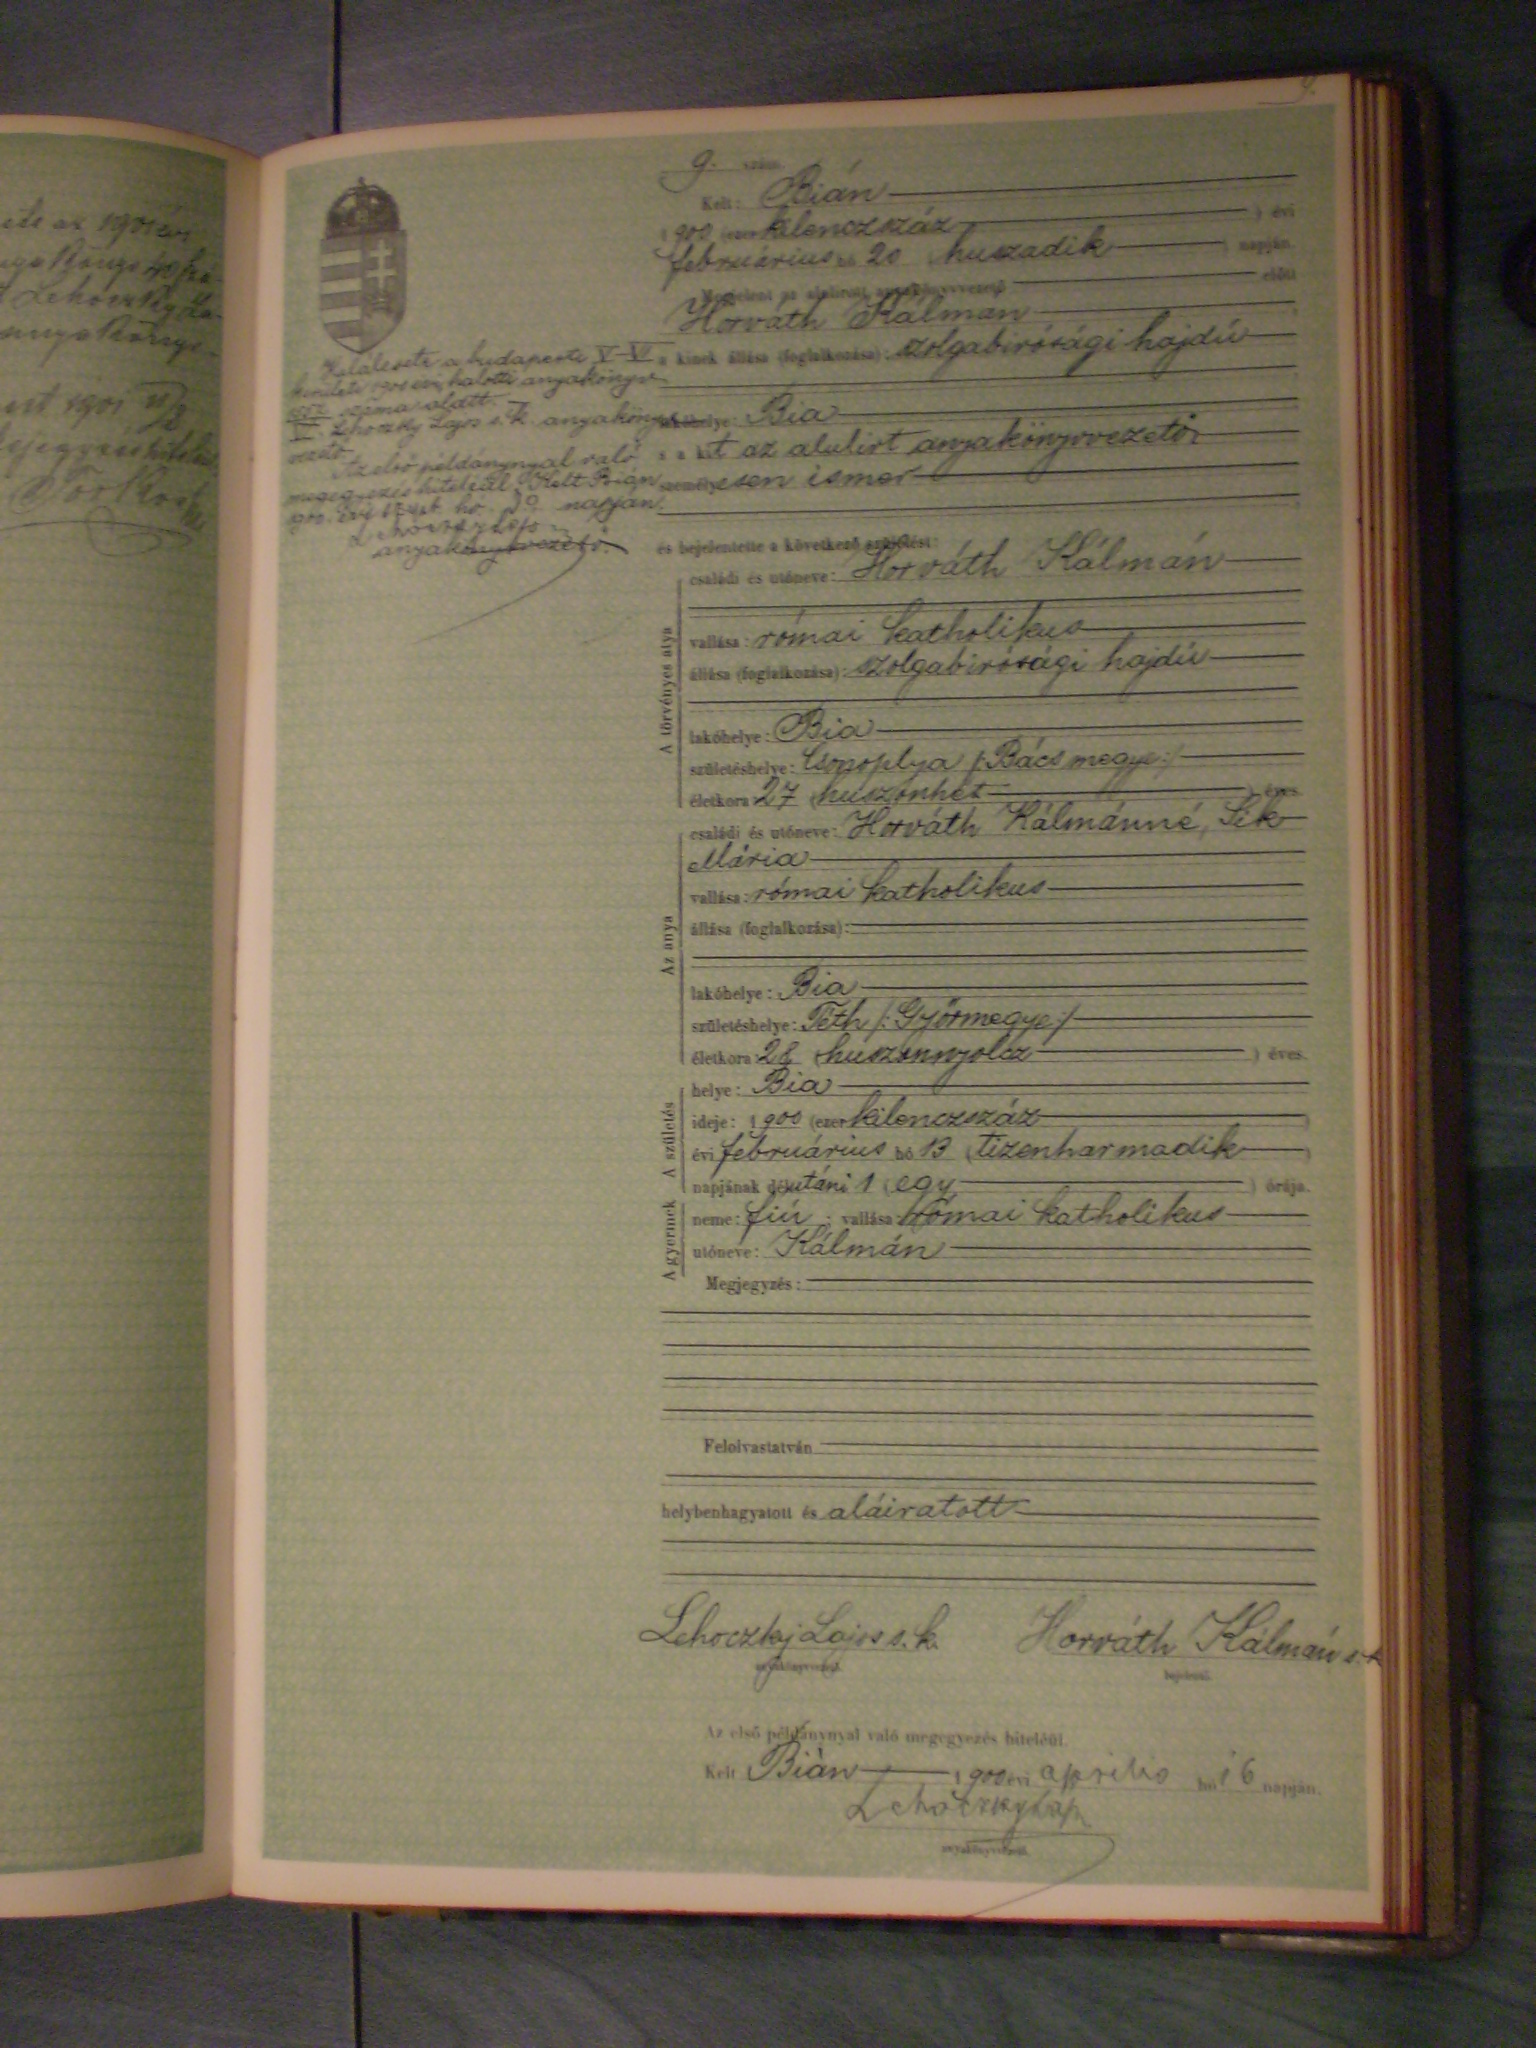 9.
9. szám.
Kelt: Bián
1900 (ezer kilenczszáz ) évi
februárius hó 20 (huszadik ) napján.
Megjelent az alulirott anyakönyvvezető előtt
Horváth Kálmán
a kinek állása (foglalkozása): szolgabirósági hajdú
lakóhelye: Bia
s a kit az alulirt anyakönyvvezető
személyesen ismer
és bejelentette a következő születést:
A törvényes atya
családi és utóneve: Horváth Kálmán
vallása: római katholikus
állása (foglalkozása): szolgabirósági hajdú
lakóhelye: Bia
születéshelye: Csonoplya /:Bács megye:/
életkora 27 (huszonhét ) éves.
Az anya
családi és utóneve: Horváth Kálmánné, Sik
Mária
vallása: római katholikus
állása (foglalkozása):
lakóhelye: Bia
születéshelye: Téth /:Győrmegye:/
életkora: 28 (huszonnyolcz ) éves.
A születés
helye: Bia
ideje: 1900 (ezer kilenczszáz )
évi februárius hó 13 (tizenharmadik )
napjának délutáni 1 (egy ) órája.
A gyermek
neme: fiú ; vallása: római katholikus
utóneve: Kálmán
Megjegyzés:
Felolvastatván
helybenhagyatott és aláiratott
Lehoczky Lajos s. k. Horváth Kálmán s. k.
anyakönyvvezető. bejelentő.
Az első példánynyal való megegyezés hiteléül.
Kelt Bián 1900 évi április hó 16 napján.
Lehoczky Lajos
anyakönyvvezető.
Halálesete a budapesti V-VI
kerületi 1900 évi halotti anyakönyv
száma alatt.
Lehoczky Lajos s. k. anyakönyv
vezető
Az első példánynyal való
megegyezés hiteléül. Kelt Bián
900. évi hó 30 napján.
Lehoczky Lajos
anyakönyvvezető.